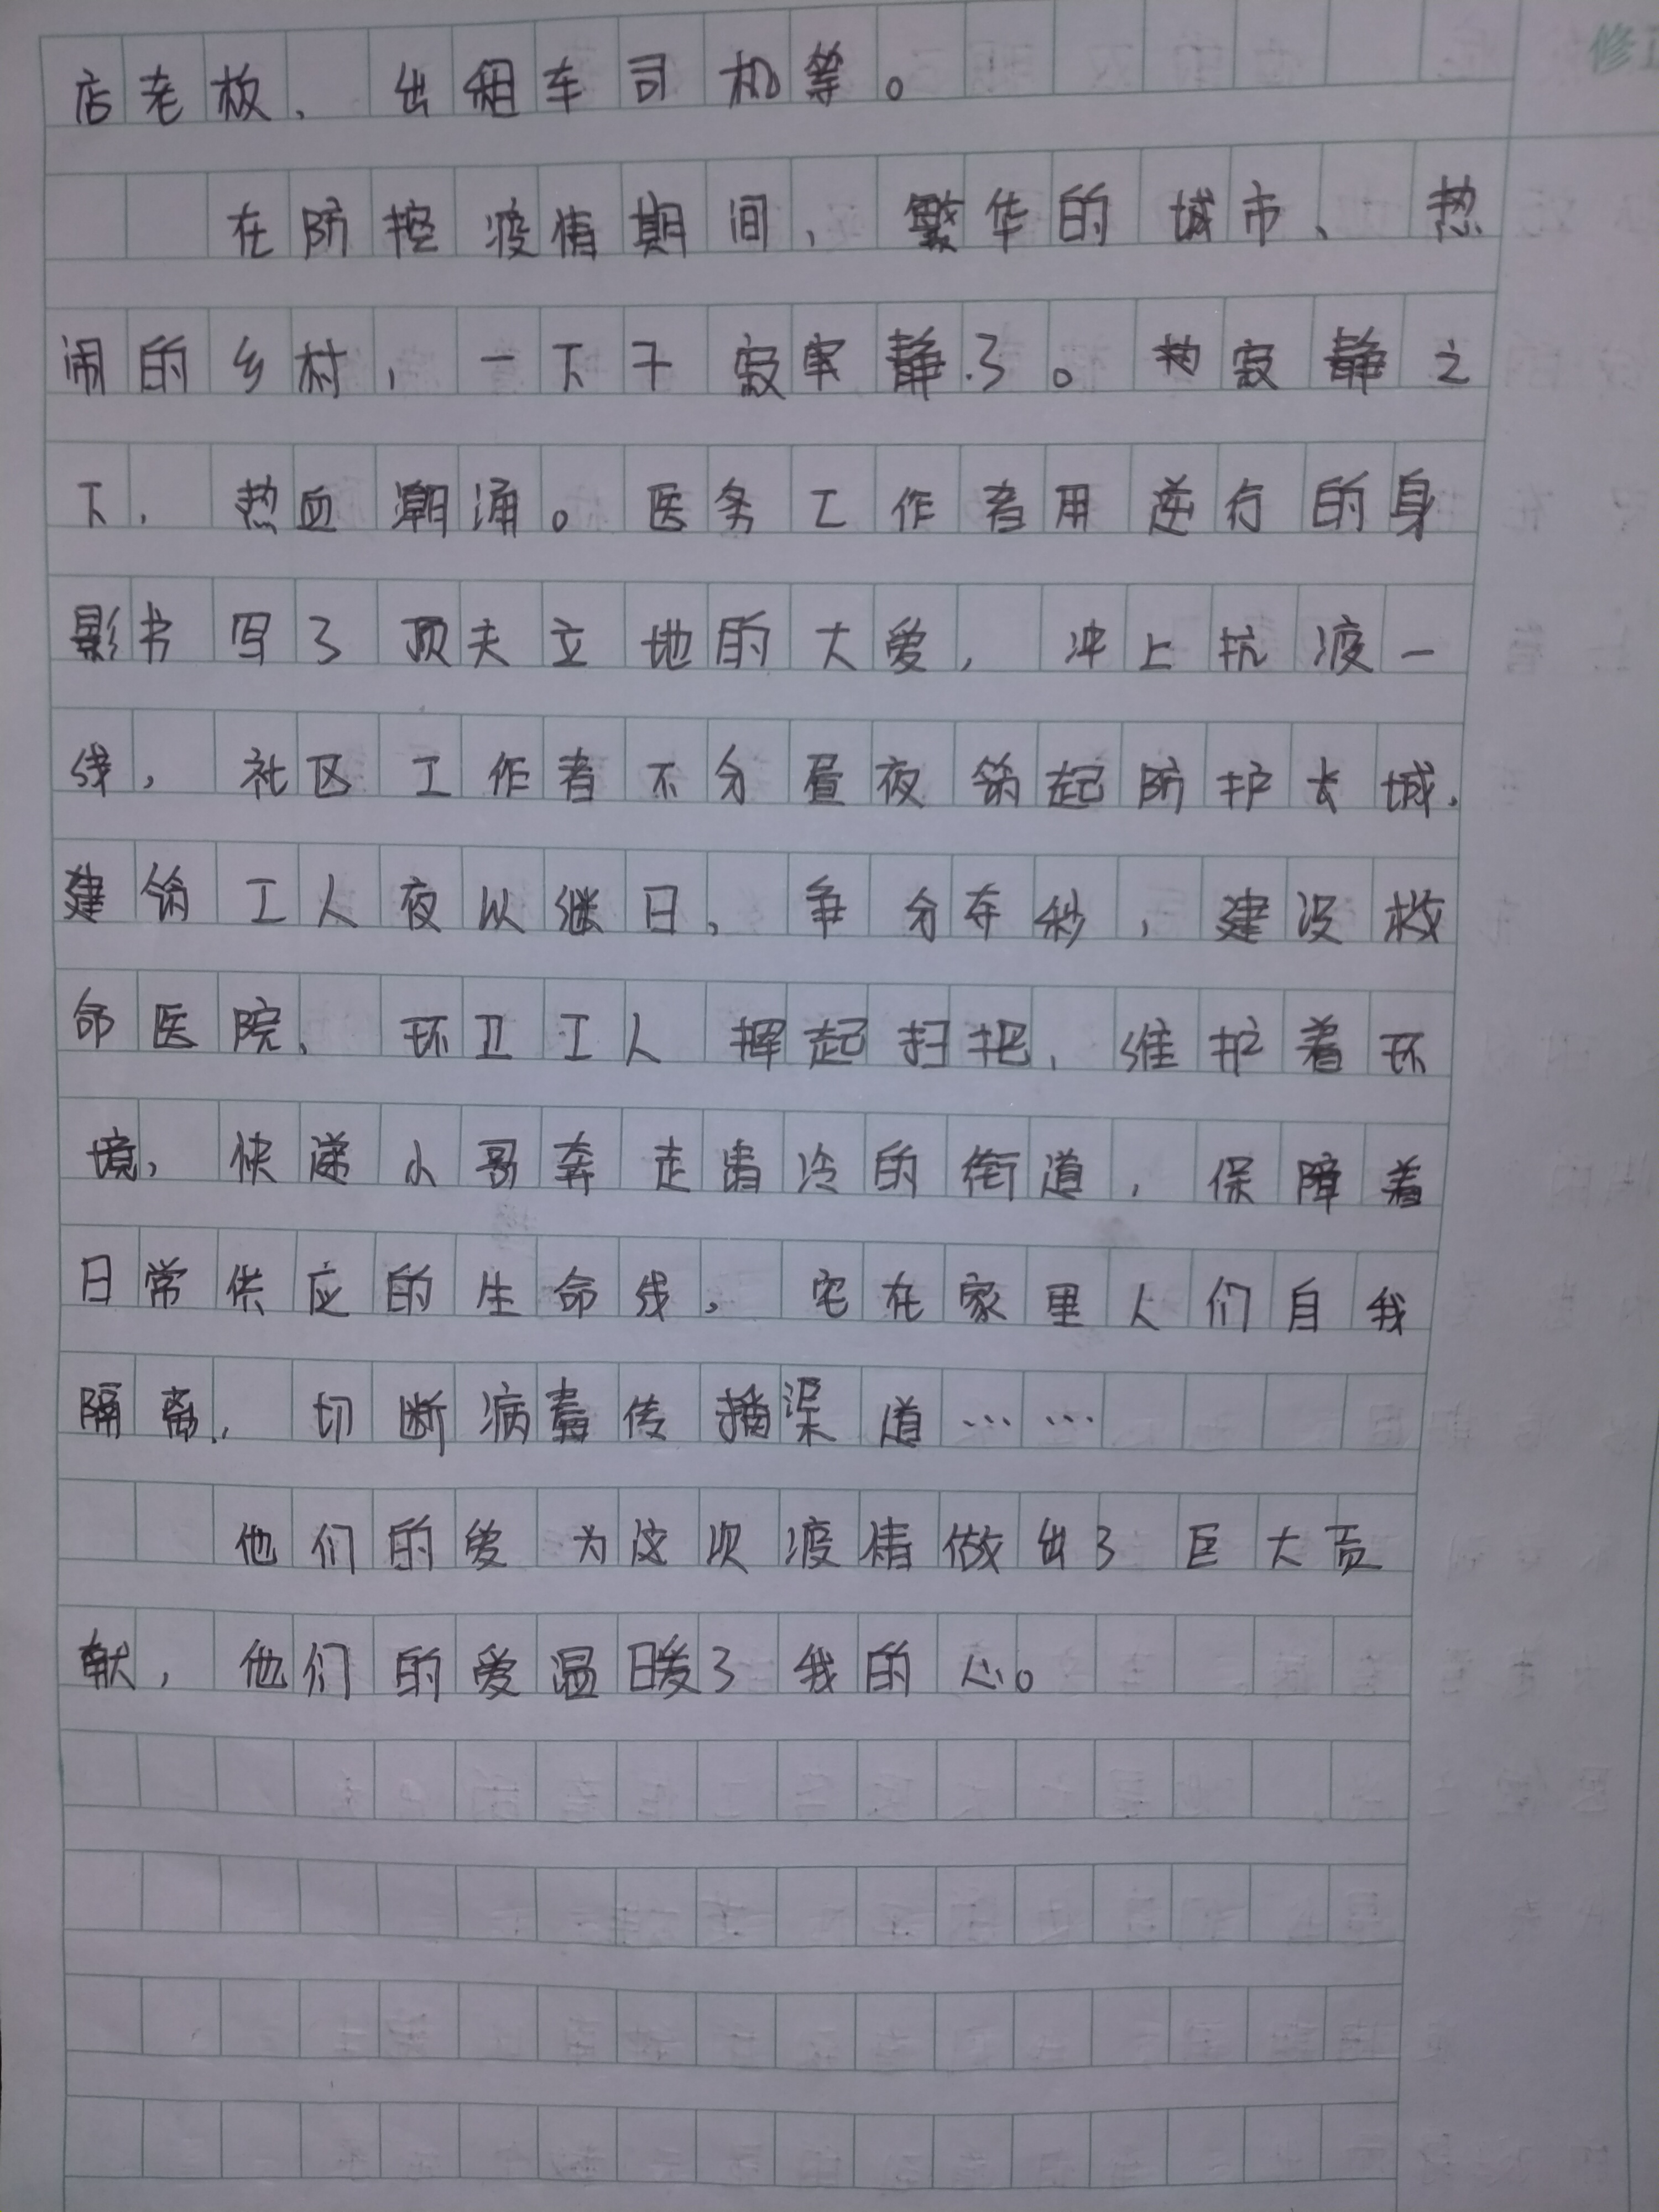 修正
店老板、出租车司机等。
在防控疫情期间，繁华的城市、热
闹的乡村，一下子寂寞静了。热寂静之
下，热血潮涌。医务工作者用逆行的身
影书写了顶天立地的大爱，冲上抗疫一
线，社区工作者不分昼夜筑起防护长城，
建筑工人夜以继日，争分夺秒，建设救
命医院、环卫工人挥起扫把，维护着环
境，快递小哥奔走清冷的街道，保障着
日常供应的生命线，宅在家里人们自我
隔离，切断病毒传播渠道……
他们的爱为这次疫情做出了巨大贡
献，他们的爱温暖了我的心。